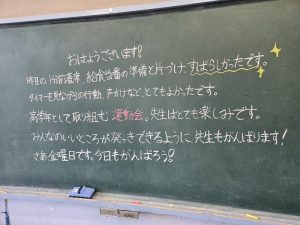 おはようございます!
昨日の1分前着席、給食当番の準備と片づけ、すばらしかったです。
タイマーを見ながらの行動、声かけなど、とてもよかったです。
高学年として取り組む運動会。先生はとても楽しみです。
みんなのいいところが発っきできるように、先生もがんばります!
さあ金曜日です。今日もがんばろう!